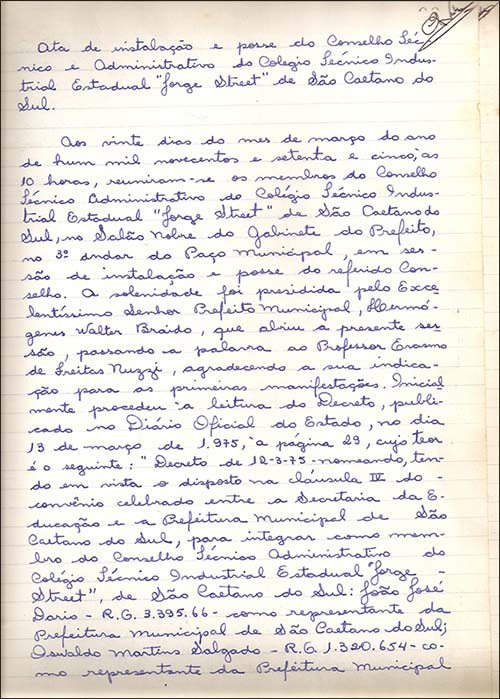 Ata de instalação e posse do Conselho Téc-
nico e Administrativo do Colégio Técnico Indus-
trial Estadual "Jorge Street" de São Caetano do
Sul.
Aos vinte dias do mes de março do ano
de hum mil novecentos e setenta e cinco, às
10 horas, reuniram-se os membros do Conselho
Técnico Administrativo do Colégio Técnico Indus-
trial Estadual "Jorge Street" de São Caetano do
Sul, no Salão Nobre do Gabinete do Prefeito,
no 3º andar do Paço Municipal, em ses-
são de instalação e posse do referido Con-
selho. A solenidade foi presidida pelo Exce-
lentíssimo Senhor Prefeito Municipal, Hermó-
genes Walter Braido, que abriu a presente ses-
são, passando a palavra ao Professor Erasmo
de Freitas Nuzzi, agradecendo a sua indica-
ção para as primeiras manifestações. Inicial
mente procedeu à leitura do Decreto, publi-
cado no Diário Oficial do Estado, no dia
13 de março de 1.975, à página 29, cujo teor
é o seguinte: "Decreto de 12-3-75 - nomeando, ten-
do em vista o disposto na cláusula IV do -
convênio celebrado entre a Secretaria da E-
ducação e a Prefeitura Municipal de São
Caetano do Sul, para integrar como mem-
bro do Conselho Técnico Administrativo do
Colégio Técnico Industrial Estadual "Jorge -
Street", de São Caetano do Sul: João José
Dario - R.G. 3.395.66 - como representante da
Prefeitura Municipal de São Caetano do Sul;
Oswaldo Martins Salgado - R.G. 1.320.654 - co-
mo representante da Prefeitura Municipal